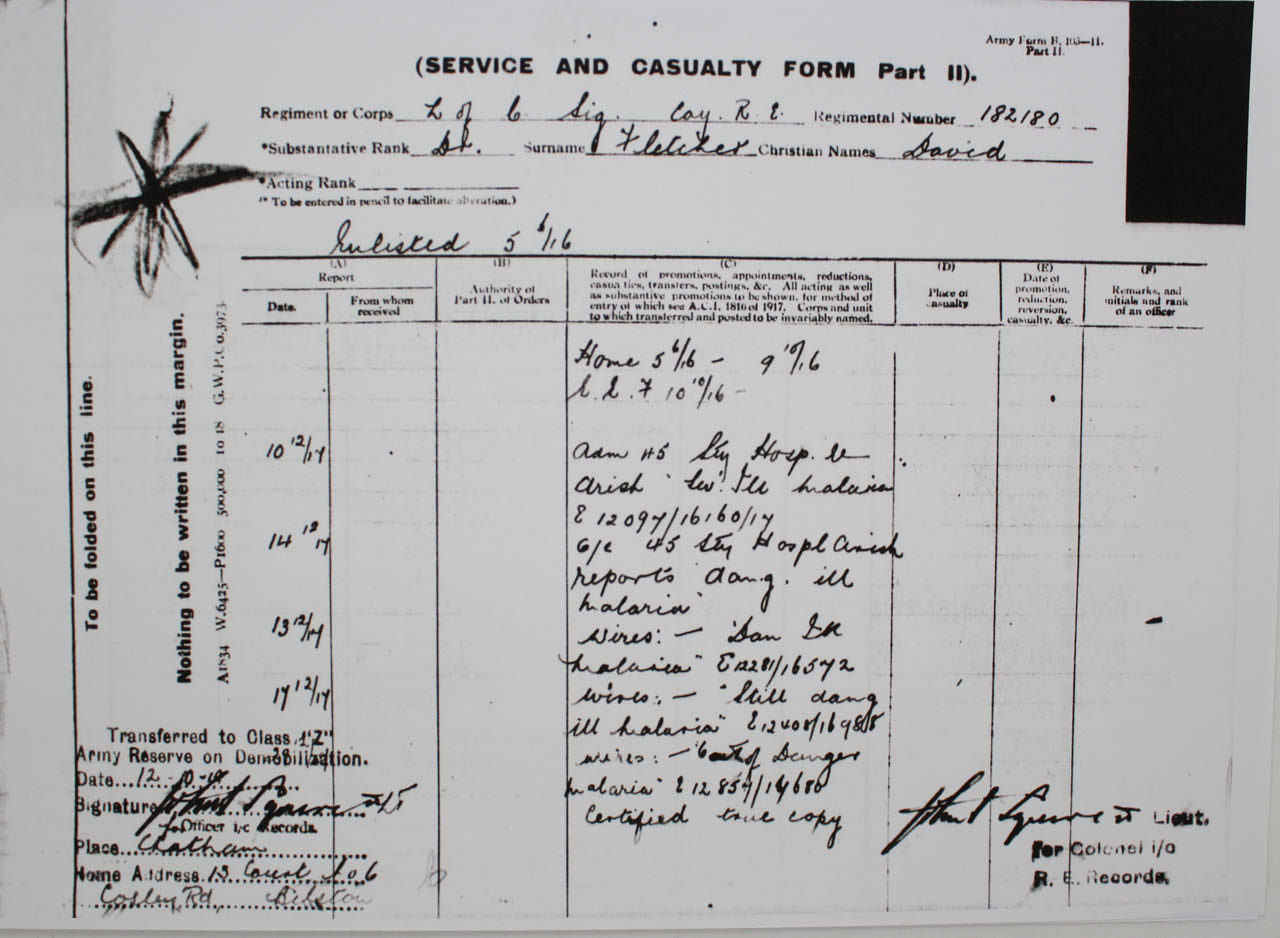 Army Form B. 103—II.
Part II.
(SERVICE AND CASUALTY FORM Part II).
Regiment or Corps L of C Sig. Coy. R. E. Regimental Number 182180
*Substantive Rank Dr. Surname Fletcher Christian Names David
*Acting Rank
(* To be entered in pencil to facilitate alteration.)
Enlisted 5 6/16
(A) (B) (C) (D) (E) (F)
Report
Date.
From whom received
Authority of Part II. of Orders
Record of promotions, appointments, reductions,
casualties, transfers, postings, &c. All acting as well
as substantive promotions to be shown, for method of
entry of which see A.C.I. 1816 of 1917. Corps and unit
to which transferred and posted to be invariably named.
Place of casualty
Date of promotion, reduction, reversion, casualty, &c.
Remarks, and initials and rank of an officer
To be folded on this line.
Nothing to be written in this margin.
A1834 W.6425—P1600 500,000 10 18 G.W.P.Co.3973
Home 5 6/16 – 9 10/16
E. E. F 10 10/16 –
10 12/17 Adm 45 Sty Hosp. El
Arish Ill malaria
E 12097/16160/17
14 12 17 O/C 45 Sty Hospl Arish
reports "dang. ill
malaria"
13 12/17 wires: – "Dan Ill
malaria" E12281/16572
17 12/17 wires: – "Still dang
ill malaria" E12408/16988
wires: – "Out of Danger
malaria" E 12857/17680
Certified true copy
Transferred to Class "Z"
Army Reserve on Demobilization.
Date
Signature
for Officer i/c Records.
Place Chatham
Home Address 13 Court No 6
Cosley Rd, Bilston
Lieut.
for Colonel i/c
R. E. Records.